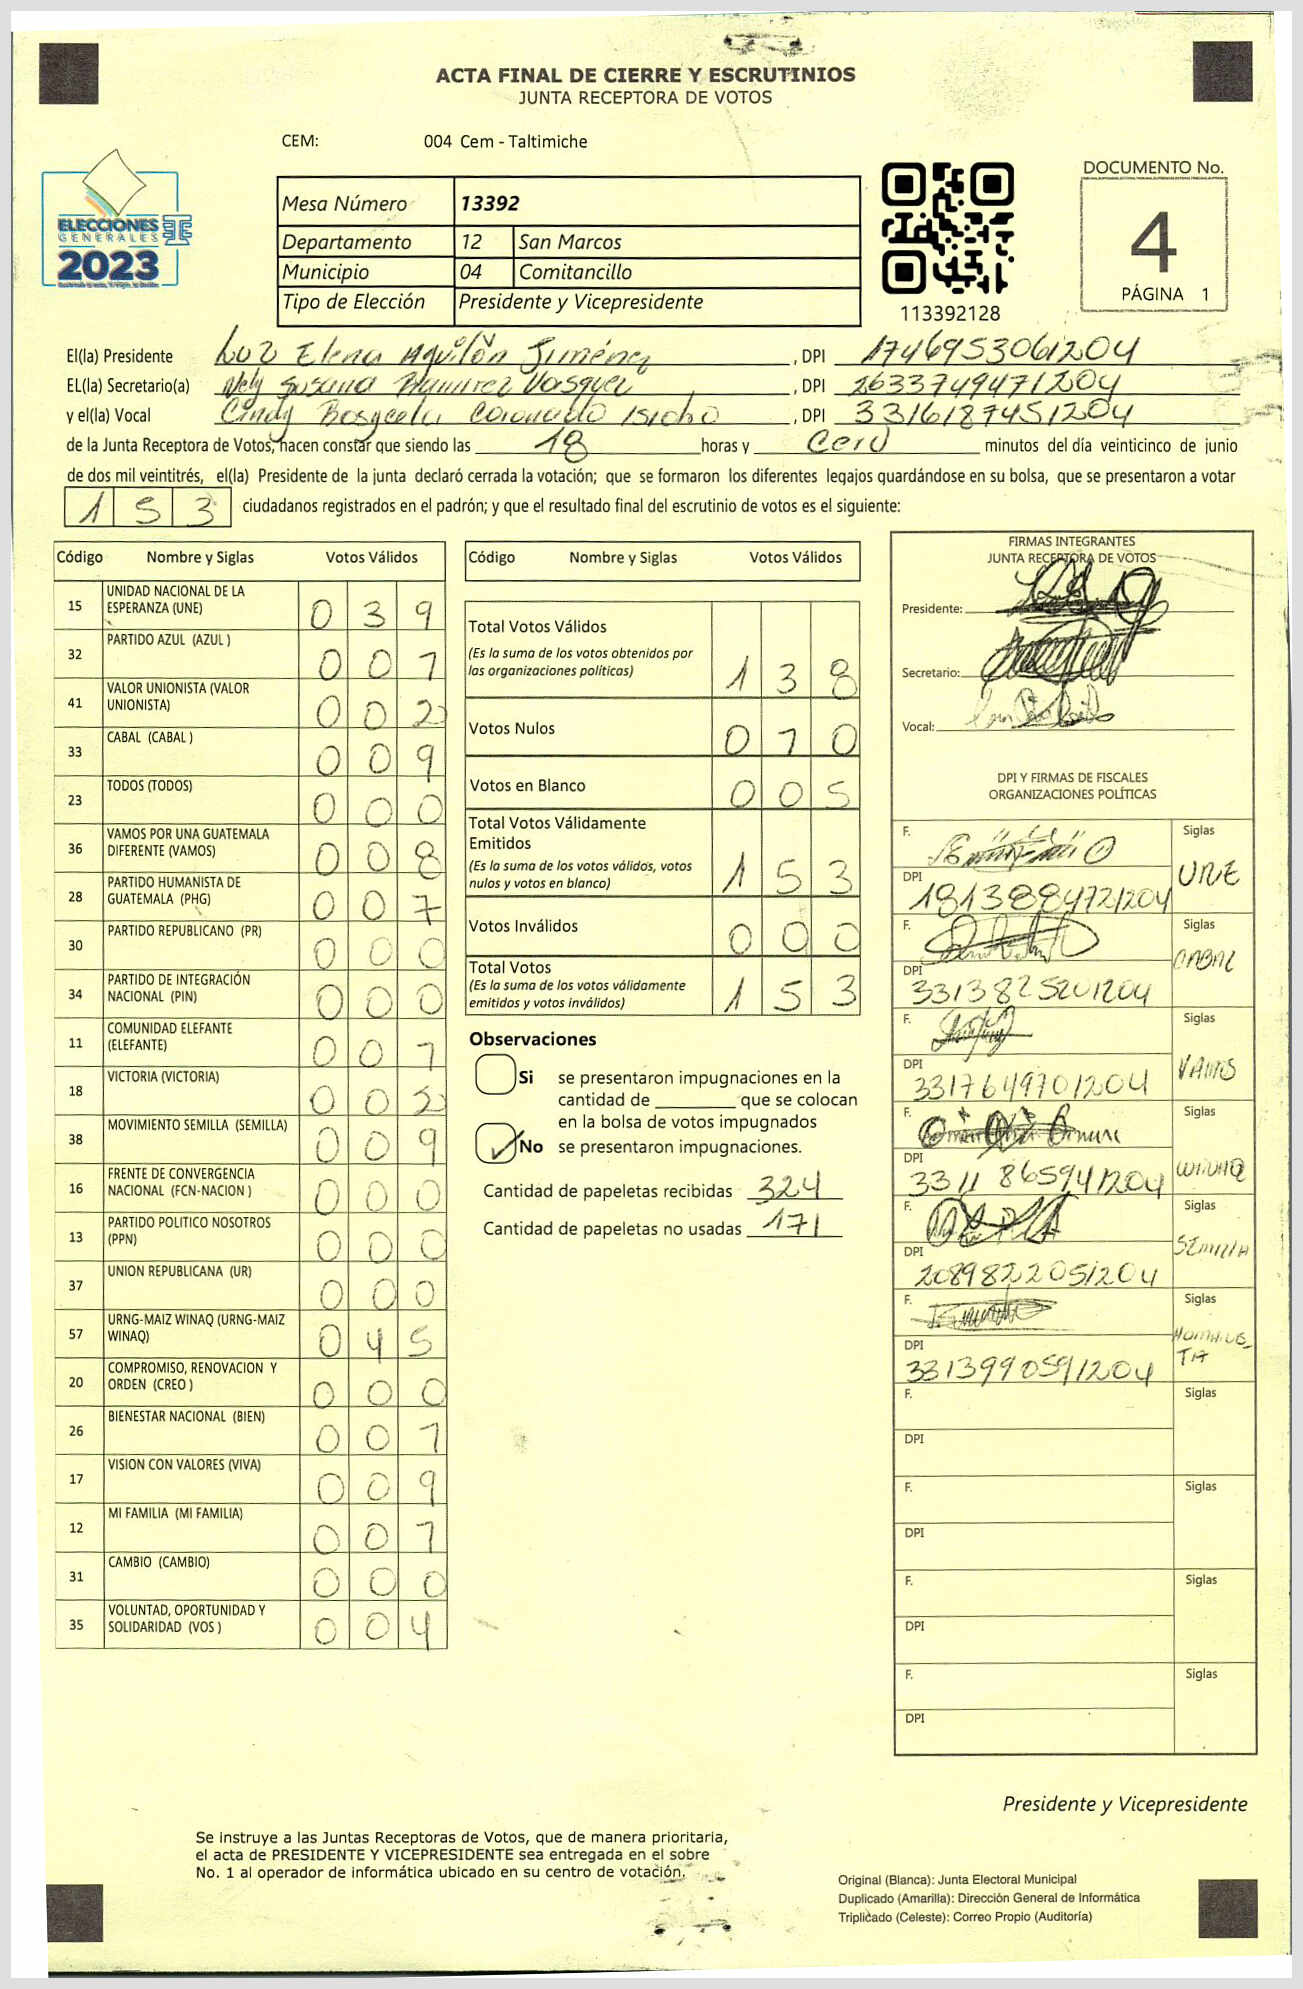 ACTA FINAL DE CIERRE Y ESCRUTINIOS
JUNTA RECEPTORA DE VOTOS
CEM: 004 Cem - Taltimiche
DOCUMENTO No.
4
PÁGINA 1
ELECCIONES
GENERALES
2023
TSE
Mesa Número 13392
Departamento 12 San Marcos
Municipio 04 Comitancillo
Tipo de Elección Presidente y Vicepresidente
113392128
El(la) Presidente Luz Elena Aguilón Jiménez, DPI 1746953061204
EL(la) Secretario(a) Nely Susana Ramirez Vasquez, DPI 2633749471204
y el(la) Vocal Cindy Coronado, DPI 3316187451204
de la Junta Receptora de Votos, hacen constar que siendo las 18 horas y Cero minutos del día veinticinco de junio
de dos mil veintitrés, el(la) Presidente de la junta declaró cerrada la votación; que se formaron los diferentes legajos guardándose en su bolsa, que se presentaron a votar
1 5 3 ciudadanos registrados en el padrón; y que el resultado final del escrutinio de votos es el siguiente:
Código Nombre y Siglas Votos Válidos
15 UNIDAD NACIONAL DE LA ESPERANZA (UNE) 0 3 9
32 PARTIDO AZUL (AZUL ) 0 0 1
41 VALOR UNIONISTA (VALOR UNIONISTA) 0 0 2
33 CABAL (CABAL ) 0 0 9
23 TODOS (TODOS) 0 0 0
36 VAMOS POR UNA GUATEMALA DIFERENTE (VAMOS) 0 0 8
28 PARTIDO HUMANISTA DE GUATEMALA (PHG) 0 0 7
30 PARTIDO REPUBLICANO (PR) 0 0 0
34 PARTIDO DE INTEGRACIÓN NACIONAL (PIN) 0 0 0
11 COMUNIDAD ELEFANTE (ELEFANTE) 0 0 1
18 VICTORIA (VICTORIA) 0 0 2
38 MOVIMIENTO SEMILLA (SEMILLA) 0 0 9
16 FRENTE DE CONVERGENCIA NACIONAL (FCN-NACION ) 0 0 0
13 PARTIDO POLITICO NOSOTROS (PPN) 0 0 0
37 UNION REPUBLICANA (UR) 0 0 0
57 URNG-MAIZ WINAQ (URNG-MAIZ WINAQ) 0 4 5
20 COMPROMISO, RENOVACION Y ORDEN (CREO ) 0 0 0
26 BIENESTAR NACIONAL (BIEN) 0 0 1
17 VISION CON VALORES (VIVA) 0 0 9
12 MI FAMILIA (MI FAMILIA) 0 0 1
31 CAMBIO (CAMBIO) 0 0 0
35 VOLUNTAD, OPORTUNIDAD Y SOLIDARIDAD (VOS ) 0 0 4
Código Nombre y Siglas Votos Válidos
Total Votos Válidos 1 3 8
(Es la suma de los votos obtenidos por
las organizaciones políticas)
Votos Nulos 0 1 0
Votos en Blanco 0 0 5
Total Votos Válidamente
Emitidos 1 5 3
(Es la suma de los votos válidos, votos
nulos y votos en blanco)
Votos Inválidos 0 0 0
Total Votos 1 5 3
(Es la suma de los votos válidamente
emitidos y votos inválidos)
Observaciones
Si se presentaron impugnaciones en la
cantidad de ________ que se colocan
en la bolsa de votos impugnados
No se presentaron impugnaciones.
Cantidad de papeletas recibidas 324
Cantidad de papeletas no usadas 171
FIRMAS INTEGRANTES
JUNTA RECEPTORA DE VOTOS
Presidente:
Secretario:
Vocal:
DPI Y FIRMAS DE FISCALES
ORGANIZACIONES POLÍTICAS
F. Siglas UNE
DPI 1813884721204
F. Siglas CABAL
DPI 3313825201204
F. Siglas VAMOS
DPI 3317649701204
F. Siglas WINAQ
DPI 3311865941204
F. Siglas SEMILLA
DPI 2089822051204
F. Siglas
DPI 3313990591204
F. Siglas
DPI
F. Siglas
DPI
F. Siglas
DPI
F. Siglas
DPI
Presidente y Vicepresidente
Se instruye a las Juntas Receptoras de Votos, que de manera prioritaria,
el acta de PRESIDENTE Y VICEPRESIDENTE sea entregada en el sobre
No. 1 al operador de informática ubicado en su centro de votación.
Original (Blanca): Junta Electoral Municipal
Duplicado (Amarilla): Dirección General de Informática
Triplicado (Celeste): Correo Propio (Auditoría)